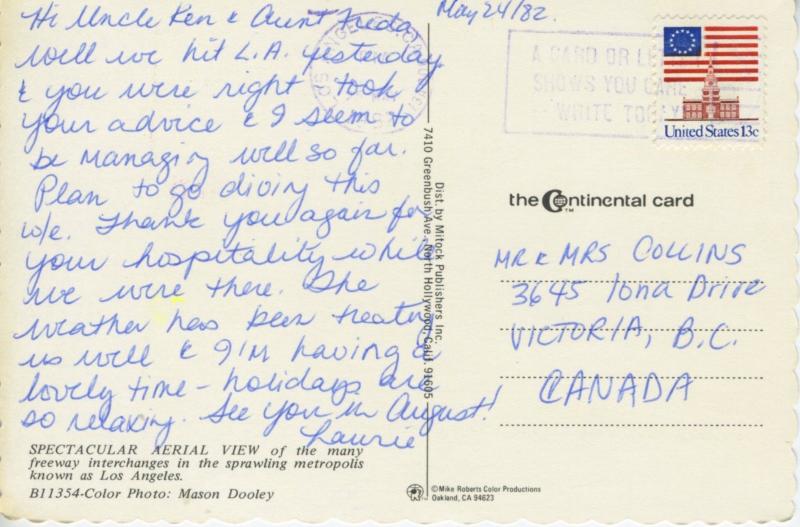 May 24/82.
Hi Uncle Ken & Aunt Freda
Well we hit L.A. yesterday
& you were right took
your advice & I seem to
be managing well so far.
Plan to go diving this
w/e. Thank you again for
your hospitality while
we were there. The
weather has been treating
us well & I'm having a
lovely time - holidays are
so relaxing. See you in August!
Laurie
SPECTACULAR AERIAL VIEW of the many
freeway interchanges in the sprawling metropolis
known as Los Angeles.
B11354-Color Photo: Mason Dooley
Dist. by Mitock Publishers Inc.
7410 Greenbush Ave., North Hollywood, Calif. 91605
A CARD OR LETTER
SHOWS YOU CARE
-- WRITE TODAY
United States 13c
the Continental card
TM
MR & MRS COLLINS
3645 Iona Drive
VICTORIA, B.C.
CANADA
©Mike Roberts Color Productions
Oakland, CA 94623